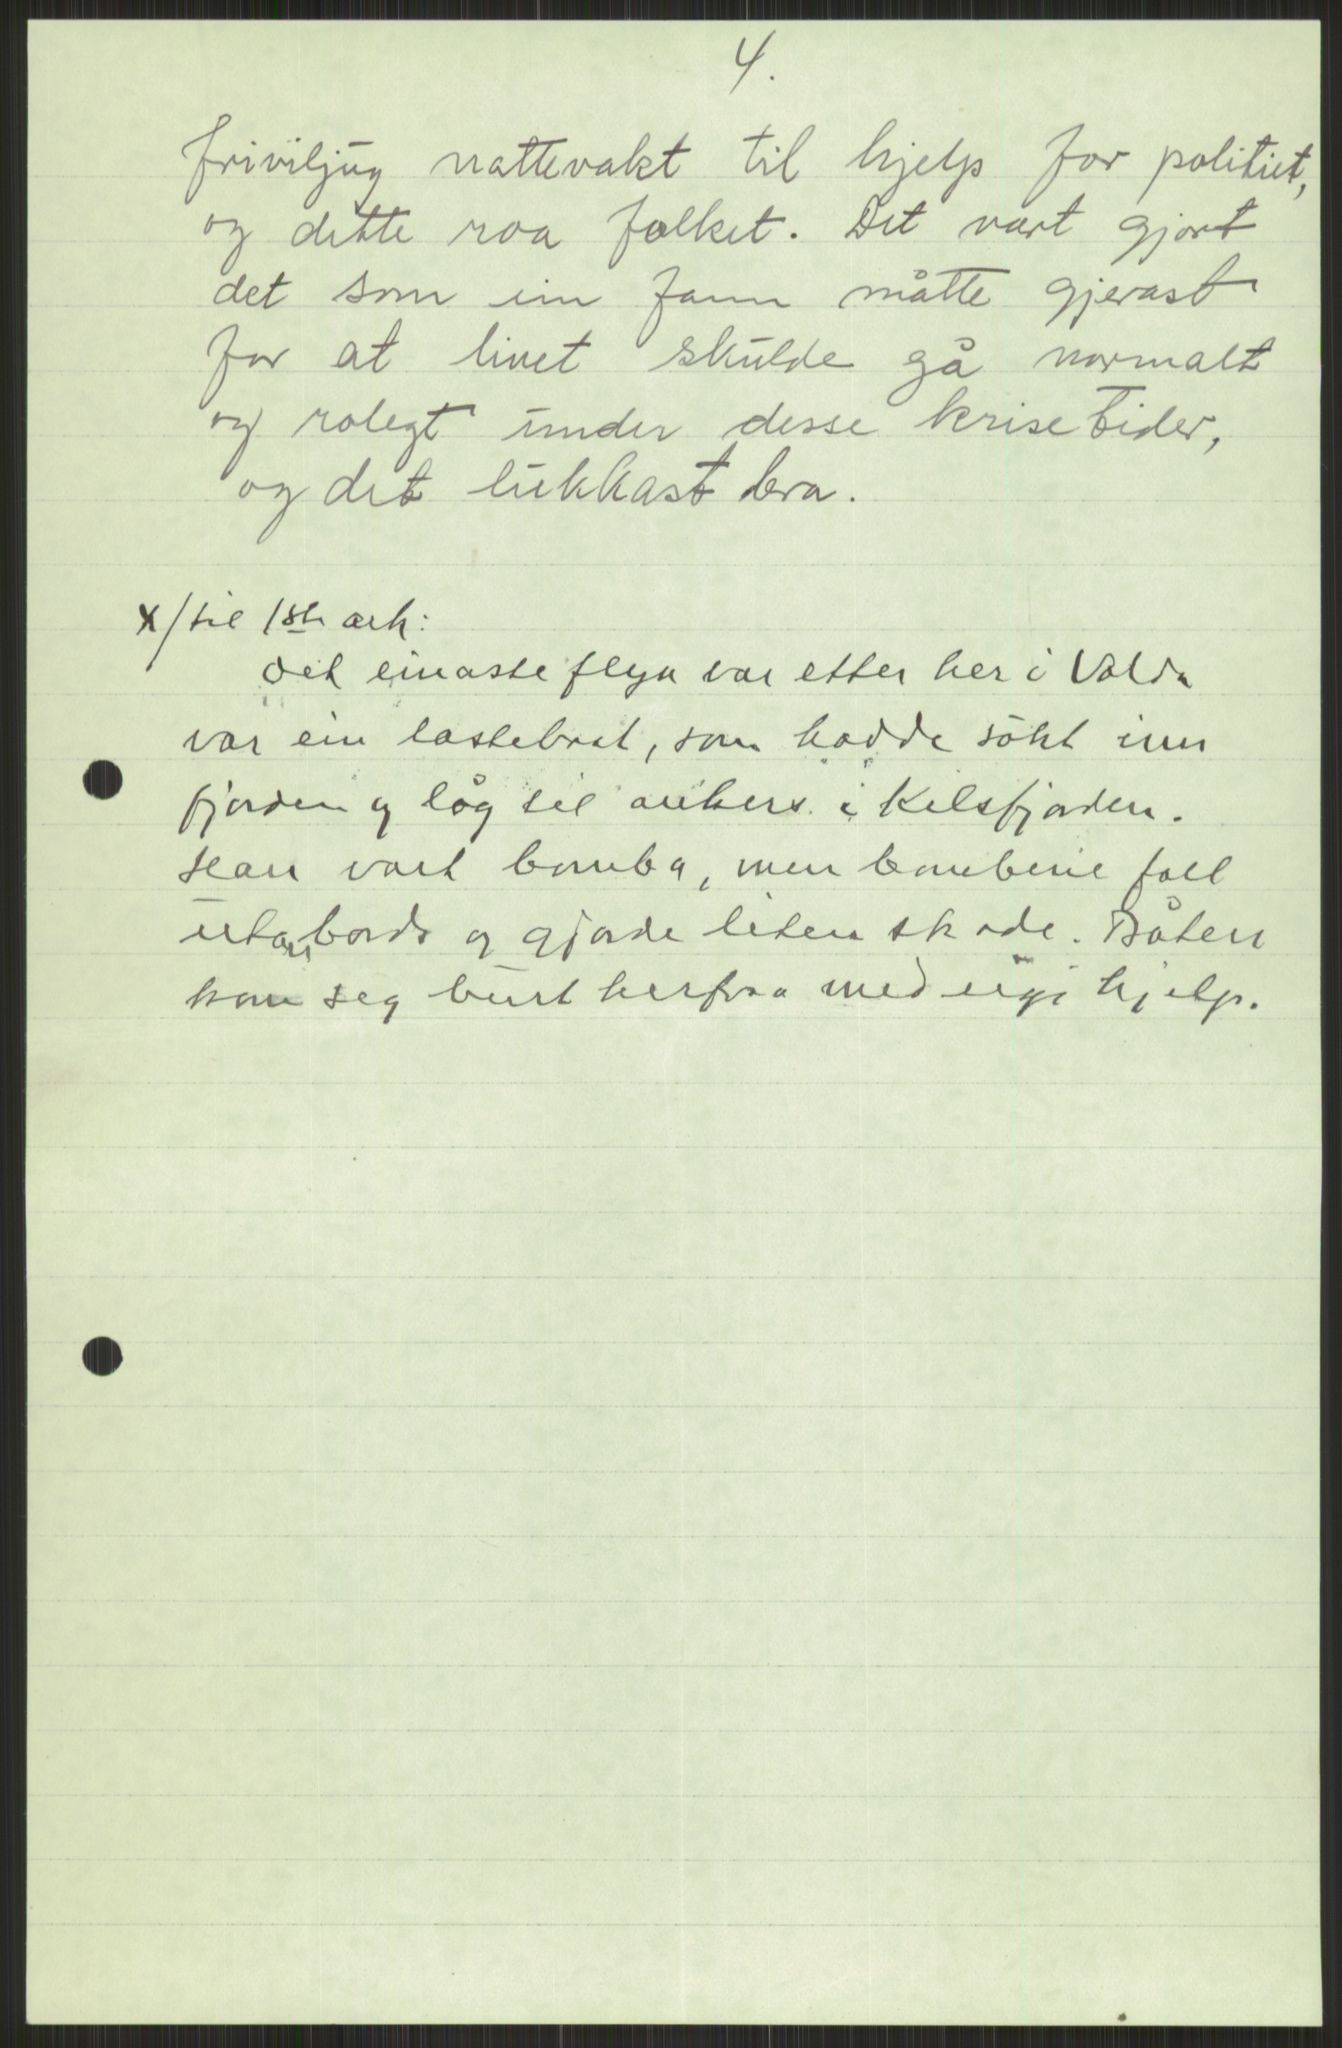 4.
friviljug nattevakt til hjelp for politiet,
og dette roa folket. Det vart gjort
det som ein fann måtte gjerast
for at livet skulde gå normalt
og rolegt under desse krisetider,
og det lukkast bra.
x/ til 1ste ark:
Det einaste flya var etter her i Volda
var ein lastebåt, som hadde søkt inn
fjorden og låg til ankers i Kilsfjorden.
Han vart bomba, men bombene fall
utanbords og gjorde liten skade. Båten
kom seg burt herfraa med eigi hjelp.